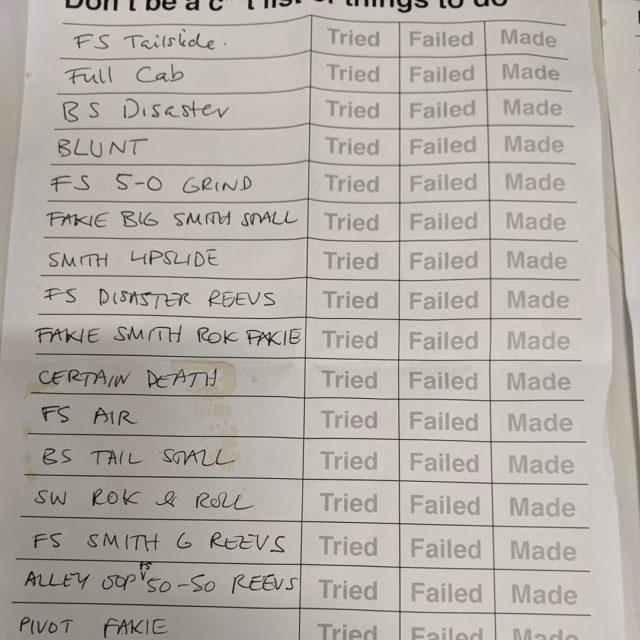 Don't be a c**t list of things to do
FS Tailslide. Tried Failed Made
Full Cab Tried Failed Made
BS Disaster Tried Failed Made
BLUNT Tried Failed Made
FS 5-0 GRIND Tried Failed Made
FAKIE BIG SMITH STALL Tried Failed Made
SMITH LIPSLIDE Tried Failed Made
FS DISASTER REEVS Tried Failed Made
FAKIE SMITH ROK FAKIE Tried Failed Made
CERTAIN DEATH Tried Failed Made
FS AIR Tried Failed Made
BS TAIL STALL Tried Failed Made
SW ROK & ROLL Tried Failed Made
FS SMITH G REEVS Tried Failed Made
ALLEY OOP FS 50-50 REEVS Tried Failed Made
PIVOT FAKIE Tried Failed Made